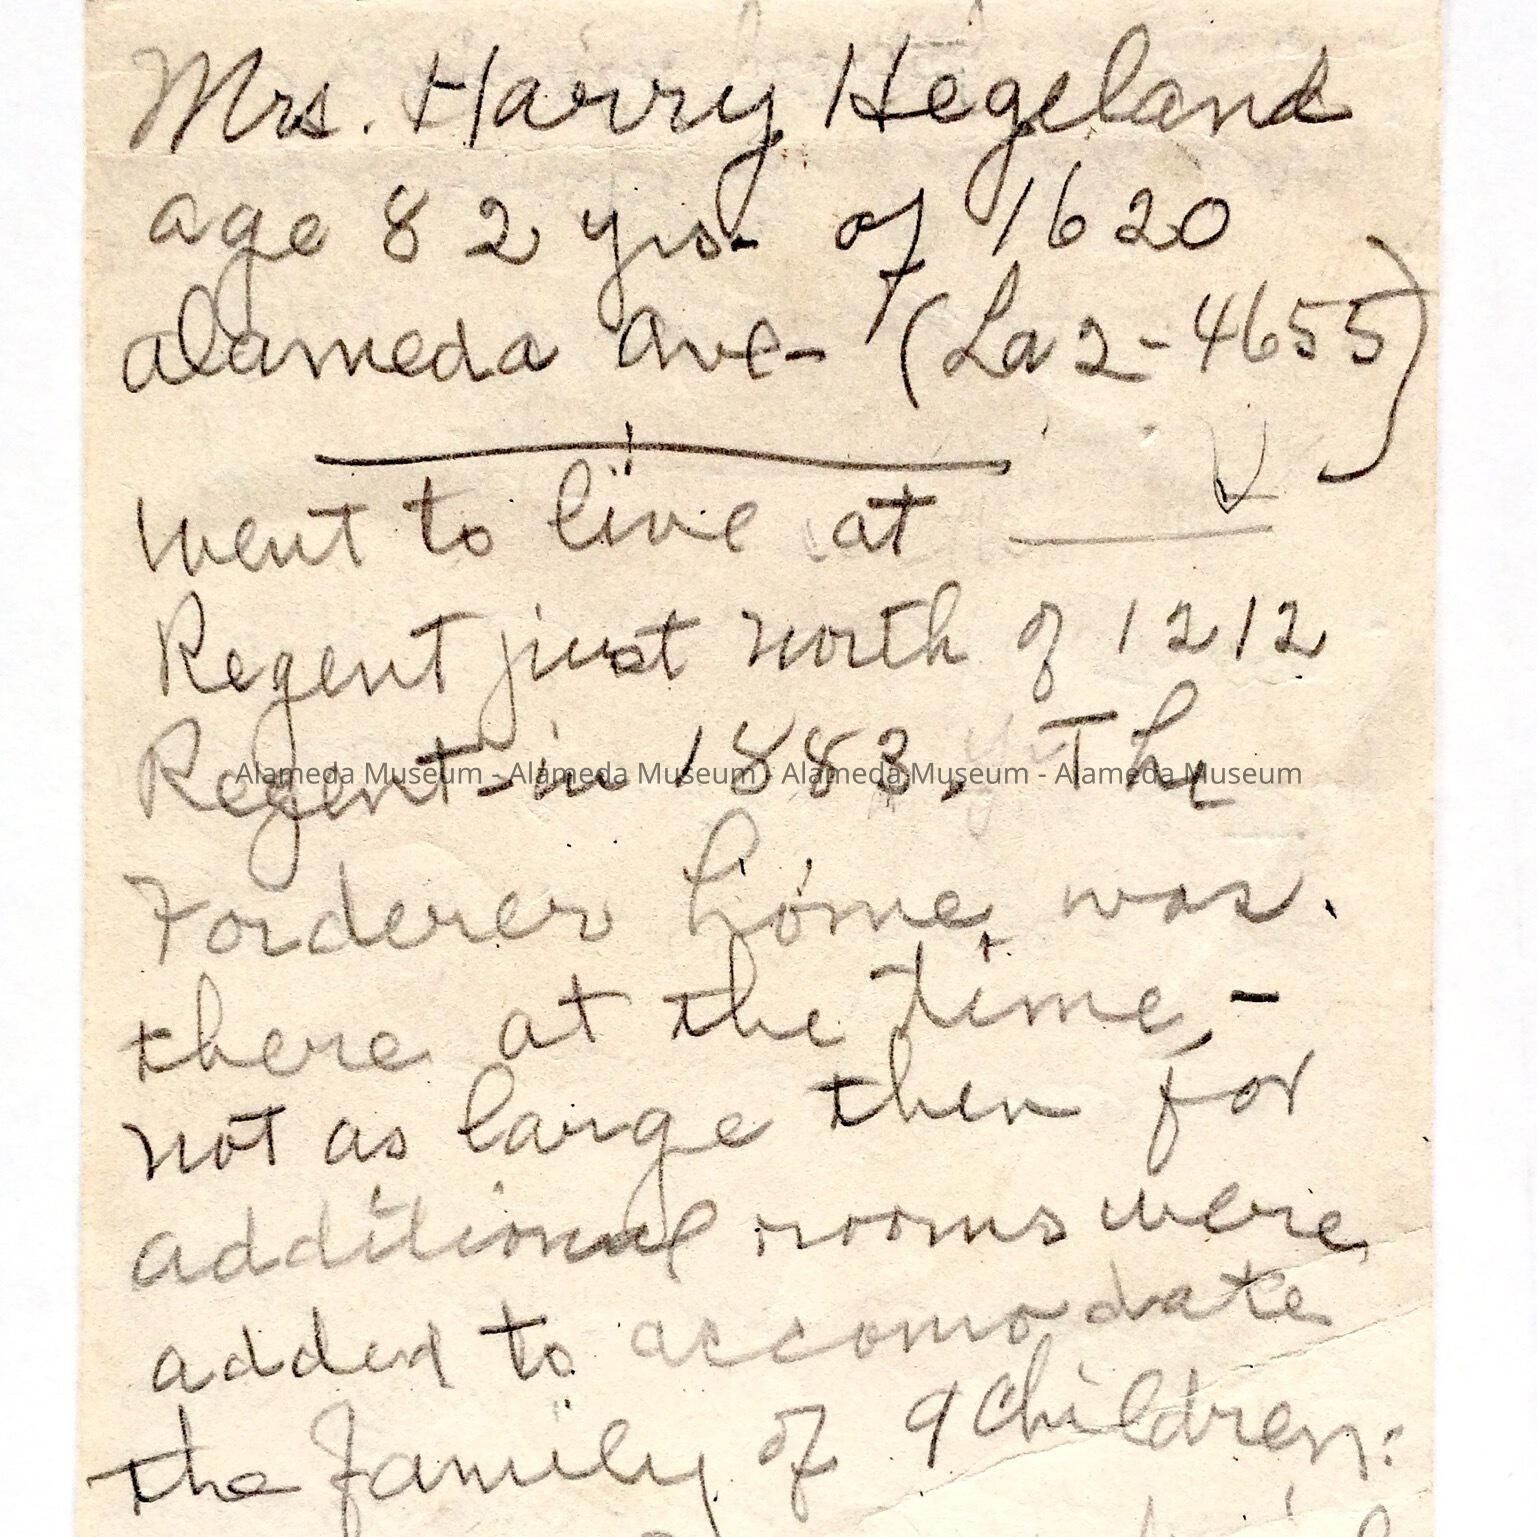 Mrs. Harry Hegeland
age 82 yrs. of 1620
Alameda Ave- (La 2-4655)
Went to live at
Regent just north of 1212
Regent-in 1883. The
Alameda Museum - Alameda Museum - Alameda Museum - Alameda Museum
Forderer home was.
there at the time,-
not as large then for
additional rooms were
added to accomodate
the family of 9 children: